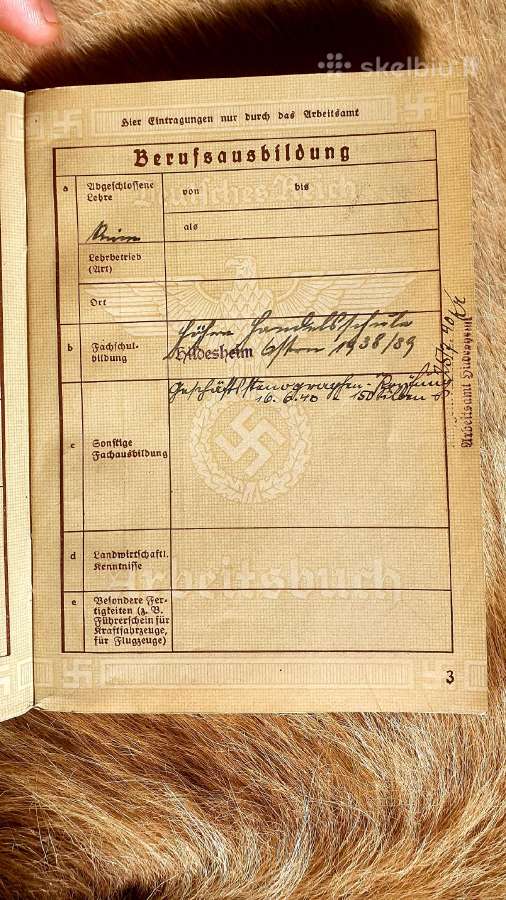 skelbiu
Hier Eintragungen nur durch das Arbeitsamt
Berufsausbildung
Deutsches Reich
a
Abgeschlossene
Lehre
von
bis
als
Lehrbetrieb
(Art)
Ort
b
Fachschul-
bildung
Höhere Handelsschule
Hildesheim Ostern 1938/39
c
Sonstige
Fachausbildung
Geschäftsstenographen-Prüfung
16.6.40 150 Silben
Arbeitsamt Hildesheim
d
Landwirtschaftl.
Kenntnisse
Arbeitsbuch
e
Besondere Fer-
tigkeiten (z. B.
Führerschein für
Kraftfahrzeuge,
für Flugzeuge)
3